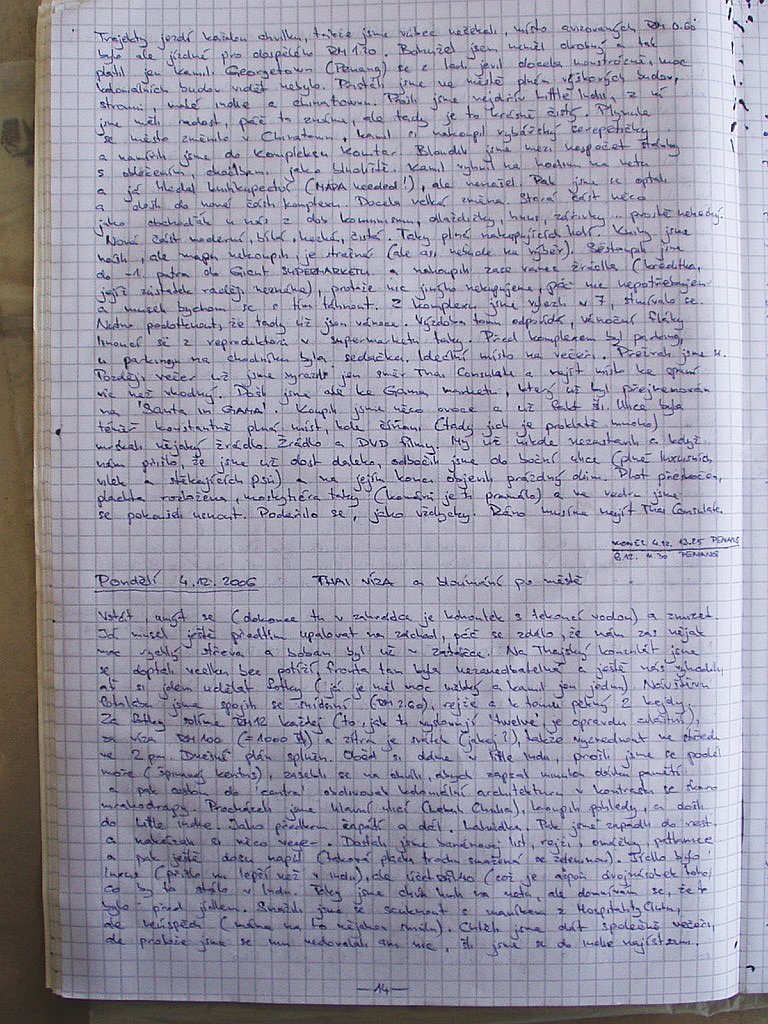 Trajekty jezdí každou chvilku, takže jsme vůbec nečekali, místo avizovaných RM 0.60
bylo ale jízdné pro dospělého RM 1.20. Bohužel jsem neměl drobný a tak
platil jen Kamil. Georgetown (Penang) se z lodi jevil docela monstrózně, moc
koloniálních budov vidět nebylo. Přistáli jsme ve městě plném výškových budov,
stromů, malé Indie a chinatownu. Prošli jsme nejdřív Little Indii, z ní
jsme měli radost, páč to známe, ale tady je to krásně čistý. Plynule
se město změnilo v Chinatown, Kamil si nakoupil
a namířili jsme do komplexu Komtar. Bloudili jsme mezi nespočet stánky
s oblečením, jako bludiště. Kamil vyhnil na hodinu na netu
a já hledal knihkupectví (MAPA needed!), ale nenašel. Pak jsme se optali
a došli do nové části komplexu. Docela velká změna. Stará část něco
jako obchoďák u nás z dob komunismu, dlaždičky, hnus, prostě nehezký.
Nová část moderní, bílá, hezká, čistá. Taky plná nakupujících lidí. Knihy jsme
našli, ale mapu nekoupili, je strašná (ale asi nebude na výběr). Sestoupili jsme
do -1. patra do Giant SUPERMARKETU a nakoupili zase ranec žrádla (kreditka,
jejíž zůstatek raději neznáme), protože nic jinýho nekupujeme, páč nic nepotřebujem
a museli bychom se s tím táhnout. Z komplexu jsme vylezli v 7, stmívalo se.
Nutno podotknout, že tady už jsou vánoce. Výzdoba tomu odpovídá, vánoční fláky
linoucí se z reproduktorů v supermarketu taky. Před komplexem byl parking,
u parkingu na chodníku byla sedačka. Ideální místo na večeři. Přežrali jsme se.
Později večer už jsme vyrazili jen směr Thai Consulate a najít místo ke spaní
víc než vhodný. Došli jsme ale ke Gama marketu, který už byl přejmenován
na "Santa in GAMA". Koupili jsme něco ovoce a už fakt šli. Ulice byla
téměř konstantně plná míst, kde číňani (tady jich je prokletě mnoho)
nějaký žrádlo. Žrádlo a DVD filmy. My už nikde nezastavili a když
nám přišlo, že jsme už dost daleko, odbočili jsme do boční ulice (plné luxusních
vilek a štěkajících psů) a na jejím konci objevili prázdný dům. Plot přeskočen,
plachta rozložena, moskytiéra taky (komárů je tu pramálo) a ve vedru jsme
se pokoušeli usnout. Podařilo se, jako vždycky. Ráno musíme najít Thai Consulate.
KONEC 4.12. 13.25 PENANG
6.12. 9.30 PENANG
Pondělí 4.12.2006 THAI VÍZA a bloumání po městě
Vstát, umýt se (dokonce tu v zahrádce je kohoutek s tekoucí vodou) a zmizet.
Já musel ještě předtím upalovat na záchod, páč se zdálo, že nám zas nějak
moc rychlý střeva a boban byl už v zatáčce. Na Thajský konzulát jsme
se doptali vcelku bez potíží, fronta tam byla nezanedbatelná a ještě nás vyhodili,
ať si jdem udělat fotky (já je měl moc and a Kamil jen jednu). Návštěvu
fotolabu jsme spojili se snídaní (RM 2.60), rejže a k tomu pěkný 2 kejdy.
Za fotky solíme RM12 každej (to, jak tu vyslovují "twelve" je opravdu zvláštní),
za víza RM100 (=1000 ) a zítra je svátek (jakej?), takže vyzvednout ve středu
ve 2 pm. Dnešní plán splněn. Oběd si dáme v little Indii, prošli jsme se podél
moře (špinavý), zasekli se na chvíli, abych zapsal
a pak centra obdivovat koloniální architekturu v kontrastu se
mrakodrapy. Procházeli jsme hlavní ulicí (Lebuh Chulia), koupili pohledy, a došli
do little Indie. Jako předkrm čapátí a dál. Lahůdka. Pak jsme zapadli do rest.
a nakázali si něco vege-. Dostali jsme banánový list, rejži, omáčky,
a pak ještě dosu napůl (taková placka trochu smažená se zeleninou). Jídlo bylo
luxus (přišlo mi lepší než v Indii), ale (což je aspoň dvojnásobek toho,
co by to stálo v Indii. Taky jsme chvíli byli na netu, ale domnívám se, že to
bylo před jídlem. Snažili jsme se seknout s maníkem z Hospitality Clubu,
ale neúspěch (máme na to nějakou smůlu). Chtěli jsme dát společně večeři,
ale protože jsme se mu nedovolali ani nic, šli jsme se do Indie najíst sami.
—14—